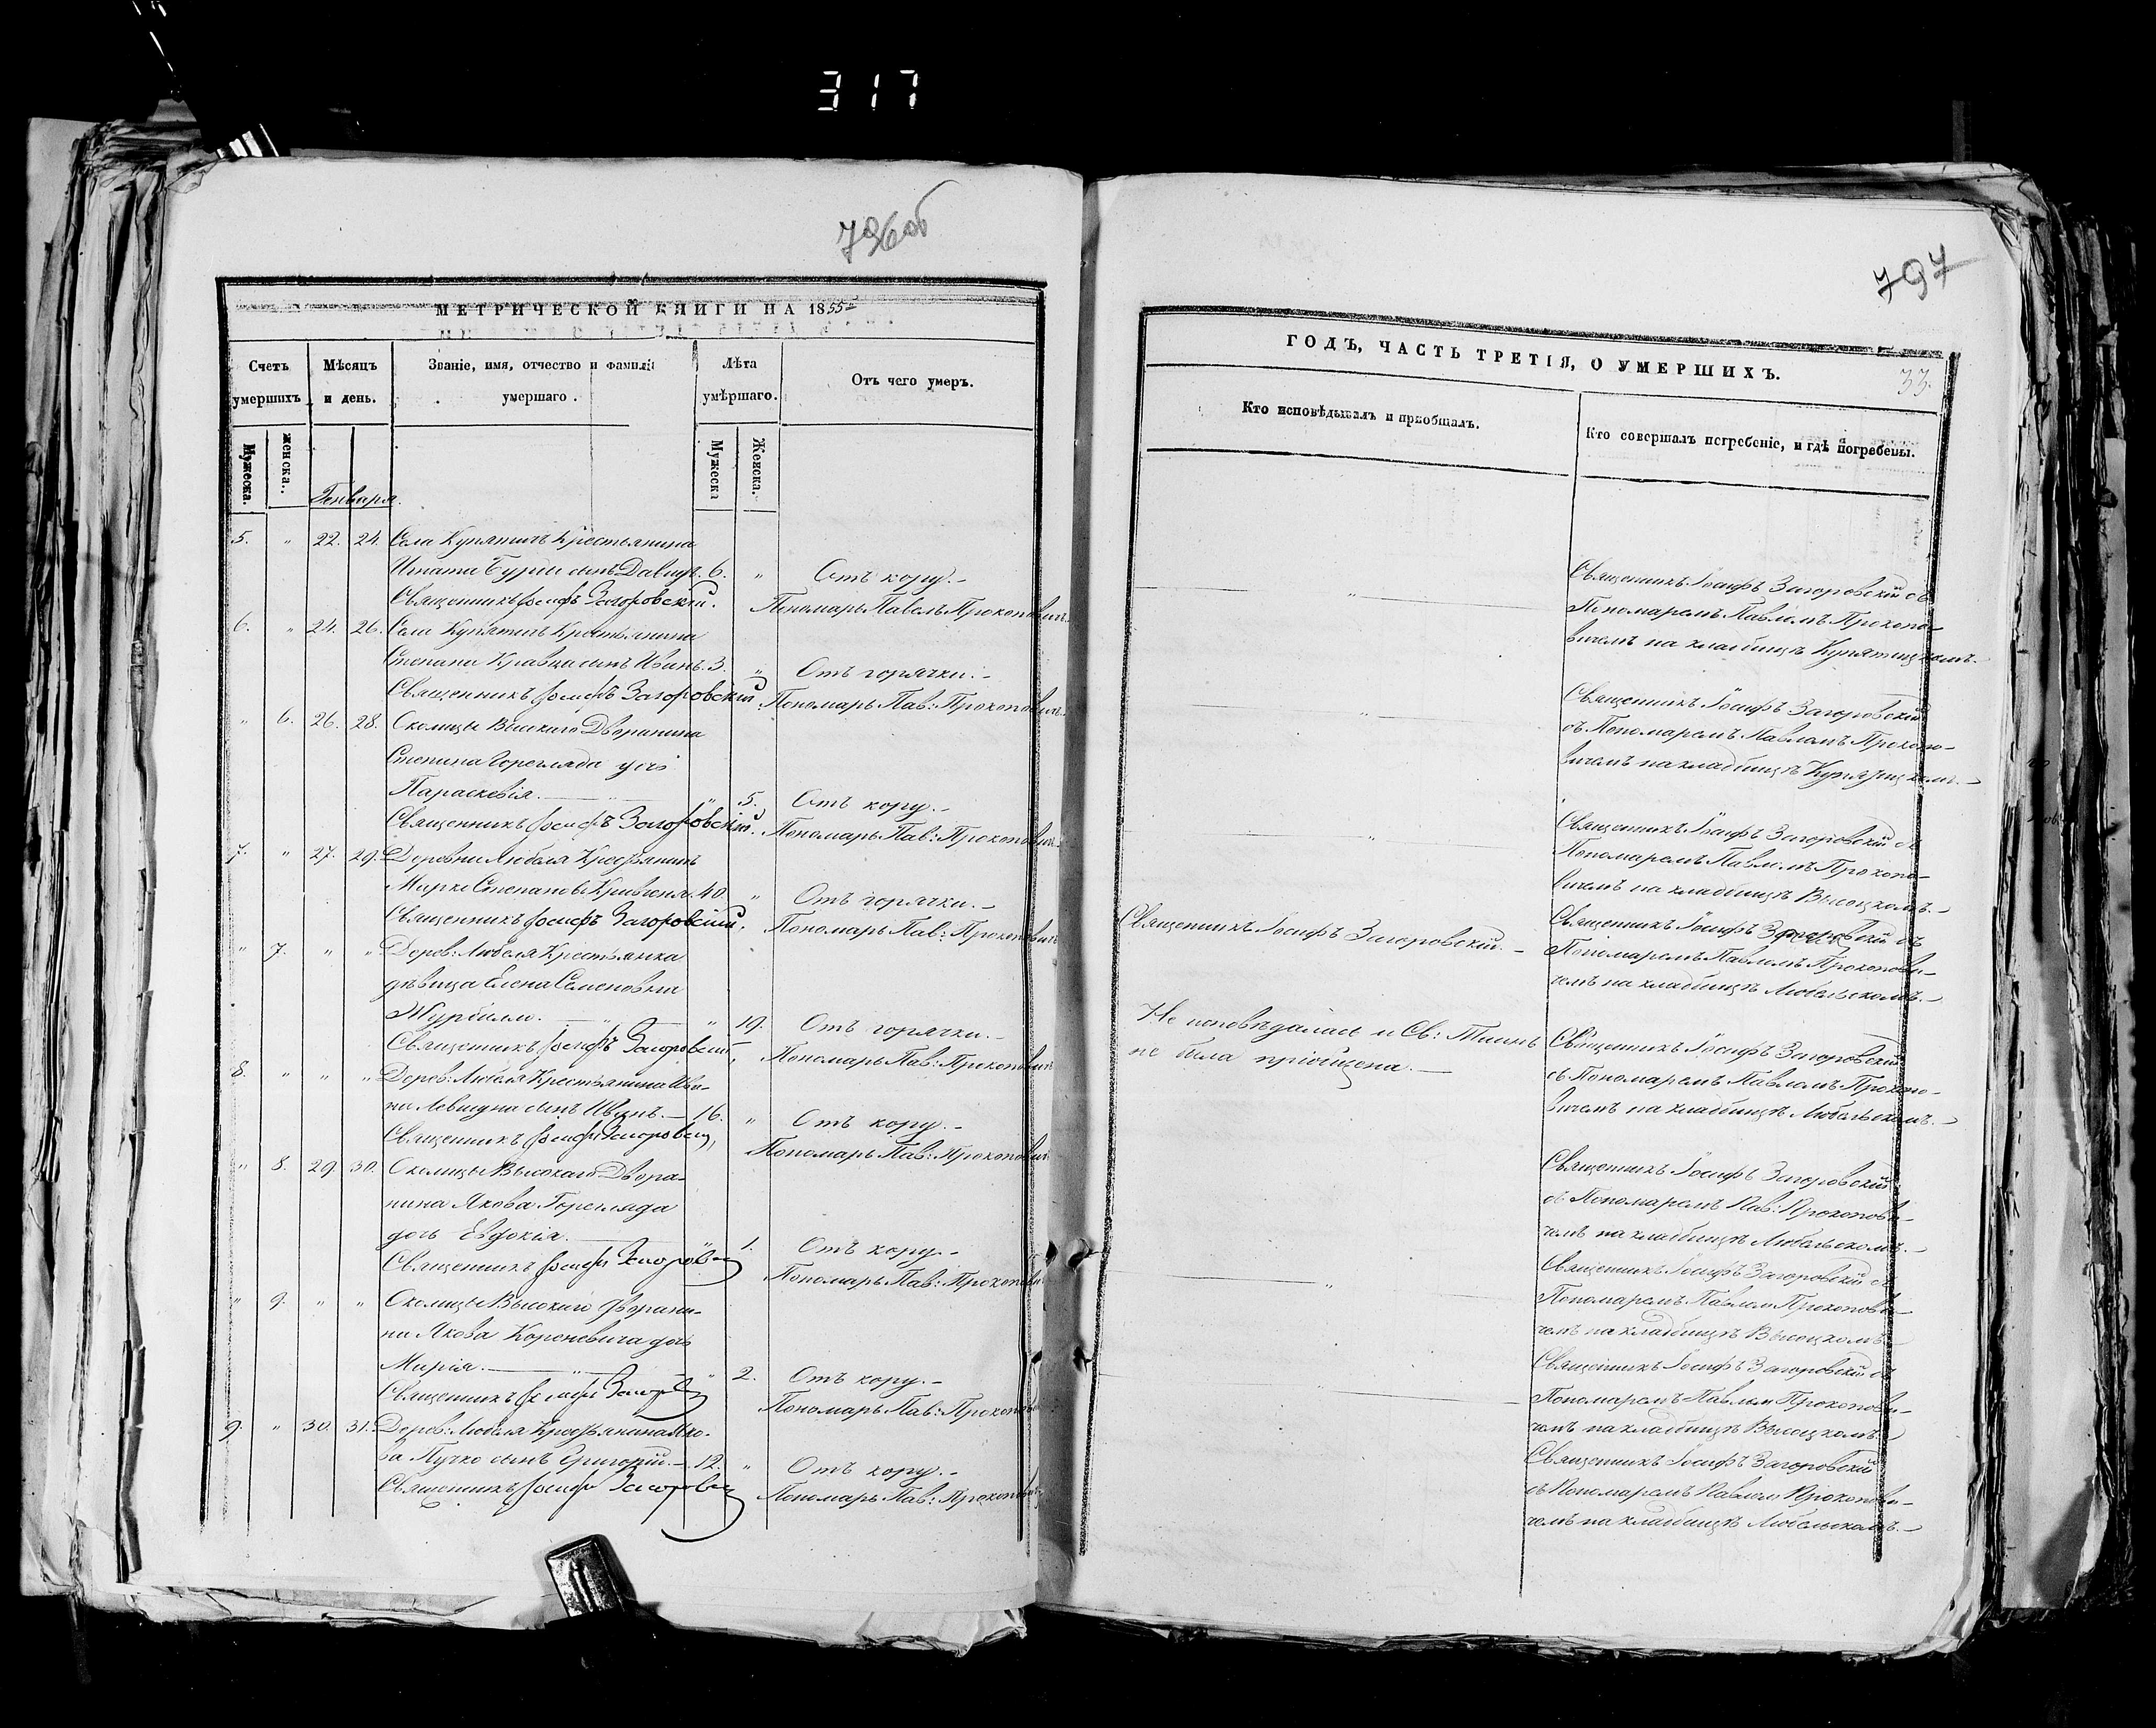 317
796об
МЕТРИЧЕСКОЙ КНИГИ НА 1855й
Счетъ умершихъ
Мѣсяцъ и день.
Званіе, имя, отчество и фамилія умершаго.
Лѣта умершаго.
Отъ чего умеръ.
Мужеска.
женска.
Мужеска
Женска.
Генваря.
5. " 22. 24. Села Купятичъ Крестьянина
сынъ Давидъ. 6. " Отъ кору.
Священникъ Іосифъ Загоровскій. Пономарь Павелъ Прокоповичъ.
6. " 24. 26. Села Купятичъ Крестьянина
Степана Кравца сынъ Иванъ. 3. " Отъ горячки.
Священникъ Іосифъ Загоровскій Пономарь Пав: Прокоповичъ.
" 6. 26. 28. Околицы Высокаго Дворянина
Степана Горегляда дочь
Параскевія. " 5. Отъ кору.
Священникъ Іосифъ Загоровскій. Пономарь Пав: Прокоповичъ
7. " 27. 29. Деревни Любеля Крестьянинъ
Степановъ 40 " Отъ горячки.
Священникъ Іосифъ Загоровскій. Пономарь Пав: Прокоповичъ
" 7. " " Дерев: Любеля Крестьянка
дѣвица Елена Семеновна
" 19. Отъ горячки.
Священникъ Іосифъ Загоровскій, Пономарь Пав: Прокоповичъ
8. " " " Дерев: Любеля Крестьянина Ива-
на сынъ Иванъ. 16. " Отъ кору.
Священникъ Іосифъ Загоровскій, Пономарь Пав: Прокоповичъ
" 8. 29. 30. Околицы Высокаго Дворя-
нина Якова Горегляда
дочь Евдокія. 1. Отъ кору.
Священникъ Іосифъ Загоровскій Пономарь Пав: Прокопови
" 9. " " Околицы Высокаго Дворяни-
на Якова Кореневича дочь
Марія. " " 2. Отъ кору.
Священникъ Іосифъ Загоровскій Пономарь Пав: Прокопо
9. " 30. 31. Дерев: Любеля Крестьянина Яко-
ва Пучко сынъ Григорій. 12. " Отъ кору.
Священникъ Іосифъ Загоровскій Пономарь Пав: Прокопов
797
ГОДЪ, ЧАСТЬ ТРЕТІЯ, О УМЕРШИХЪ.
33.
Кто исповѣдывалъ и пріобщалъ.
Кто совершалъ погребеніе, и гдѣ погребены.
Священникъ Іосифъ Загоровскій съ
" Пономаремъ Павломъ Прокопо-
вичемъ на кладбищѣ Купятицкомъ.
Священникъ Іосифъ Загоровскій
" съ Пономаремъ Павломъ Прокопо-
вичемъ на кладбищѣ Купятицкомъ.
Священникъ Іосифъ Загоровскій съ
" Пономаремъ Павломъ Прокопо-
вичемъ на кладбищѣ Высоцкомъ.
Священникъ Іосифъ Загоровскій.
Священникъ Іосифъ Загоровскій съ
Пономаремъ Павломъ Прокопови-
чемъ на кладбищѣ Любельскомъ.
Не исповѣдалась и Св: Таинъ
не была пріобщена.
Священникъ Іосифъ Загоровскій
съ Пономаремъ Павломъ Прокопо-
вичемъ на кладбищѣ Любельскомъ.
Священникъ Іосифъ Загоровскій
съ Пономаремъ Пав: Прокопови-
чемъ на кладбищѣ Любельскомъ.
Священникъ Іосифъ Загоровскій съ
" Пономаремъ Павлом Прокопови-
чемъ на кладбищѣ Высоцкомъ
Священникъ Іосифъ Загоровскій съ
Пономаремъ Павлом Прокопови-
чемъ на кладбищѣ Высоцкомъ.
Священникъ Іосифъ Загоровскій
съ Пономаремъ Павлом Прокопови-
чемъ на кладбищѣ Любельскомъ.